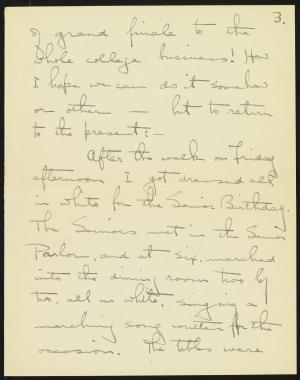 3.
of grand finale to the
whole college business! How
I hope we can do it somehow
or other — but to return
to the present: —
After the walk on Friday
afternoon I got dressed all
in white for the Senior Birthday.
The Seniors met in the Senior
Parlor, and at six, marched
into the dining room two by
two, all in white, singing a
marching song written for the
occasion. The tables were